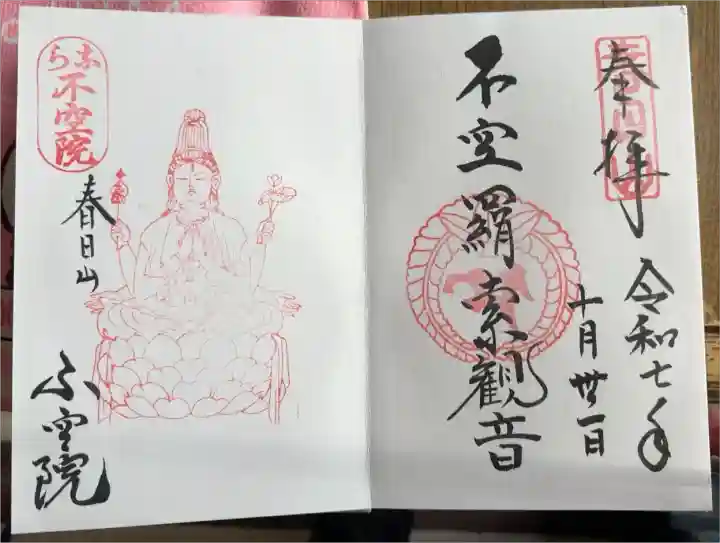 奉拝
令和七年
十月丗一日
不空羂索觀音
なら
不空院
春日山
不空院